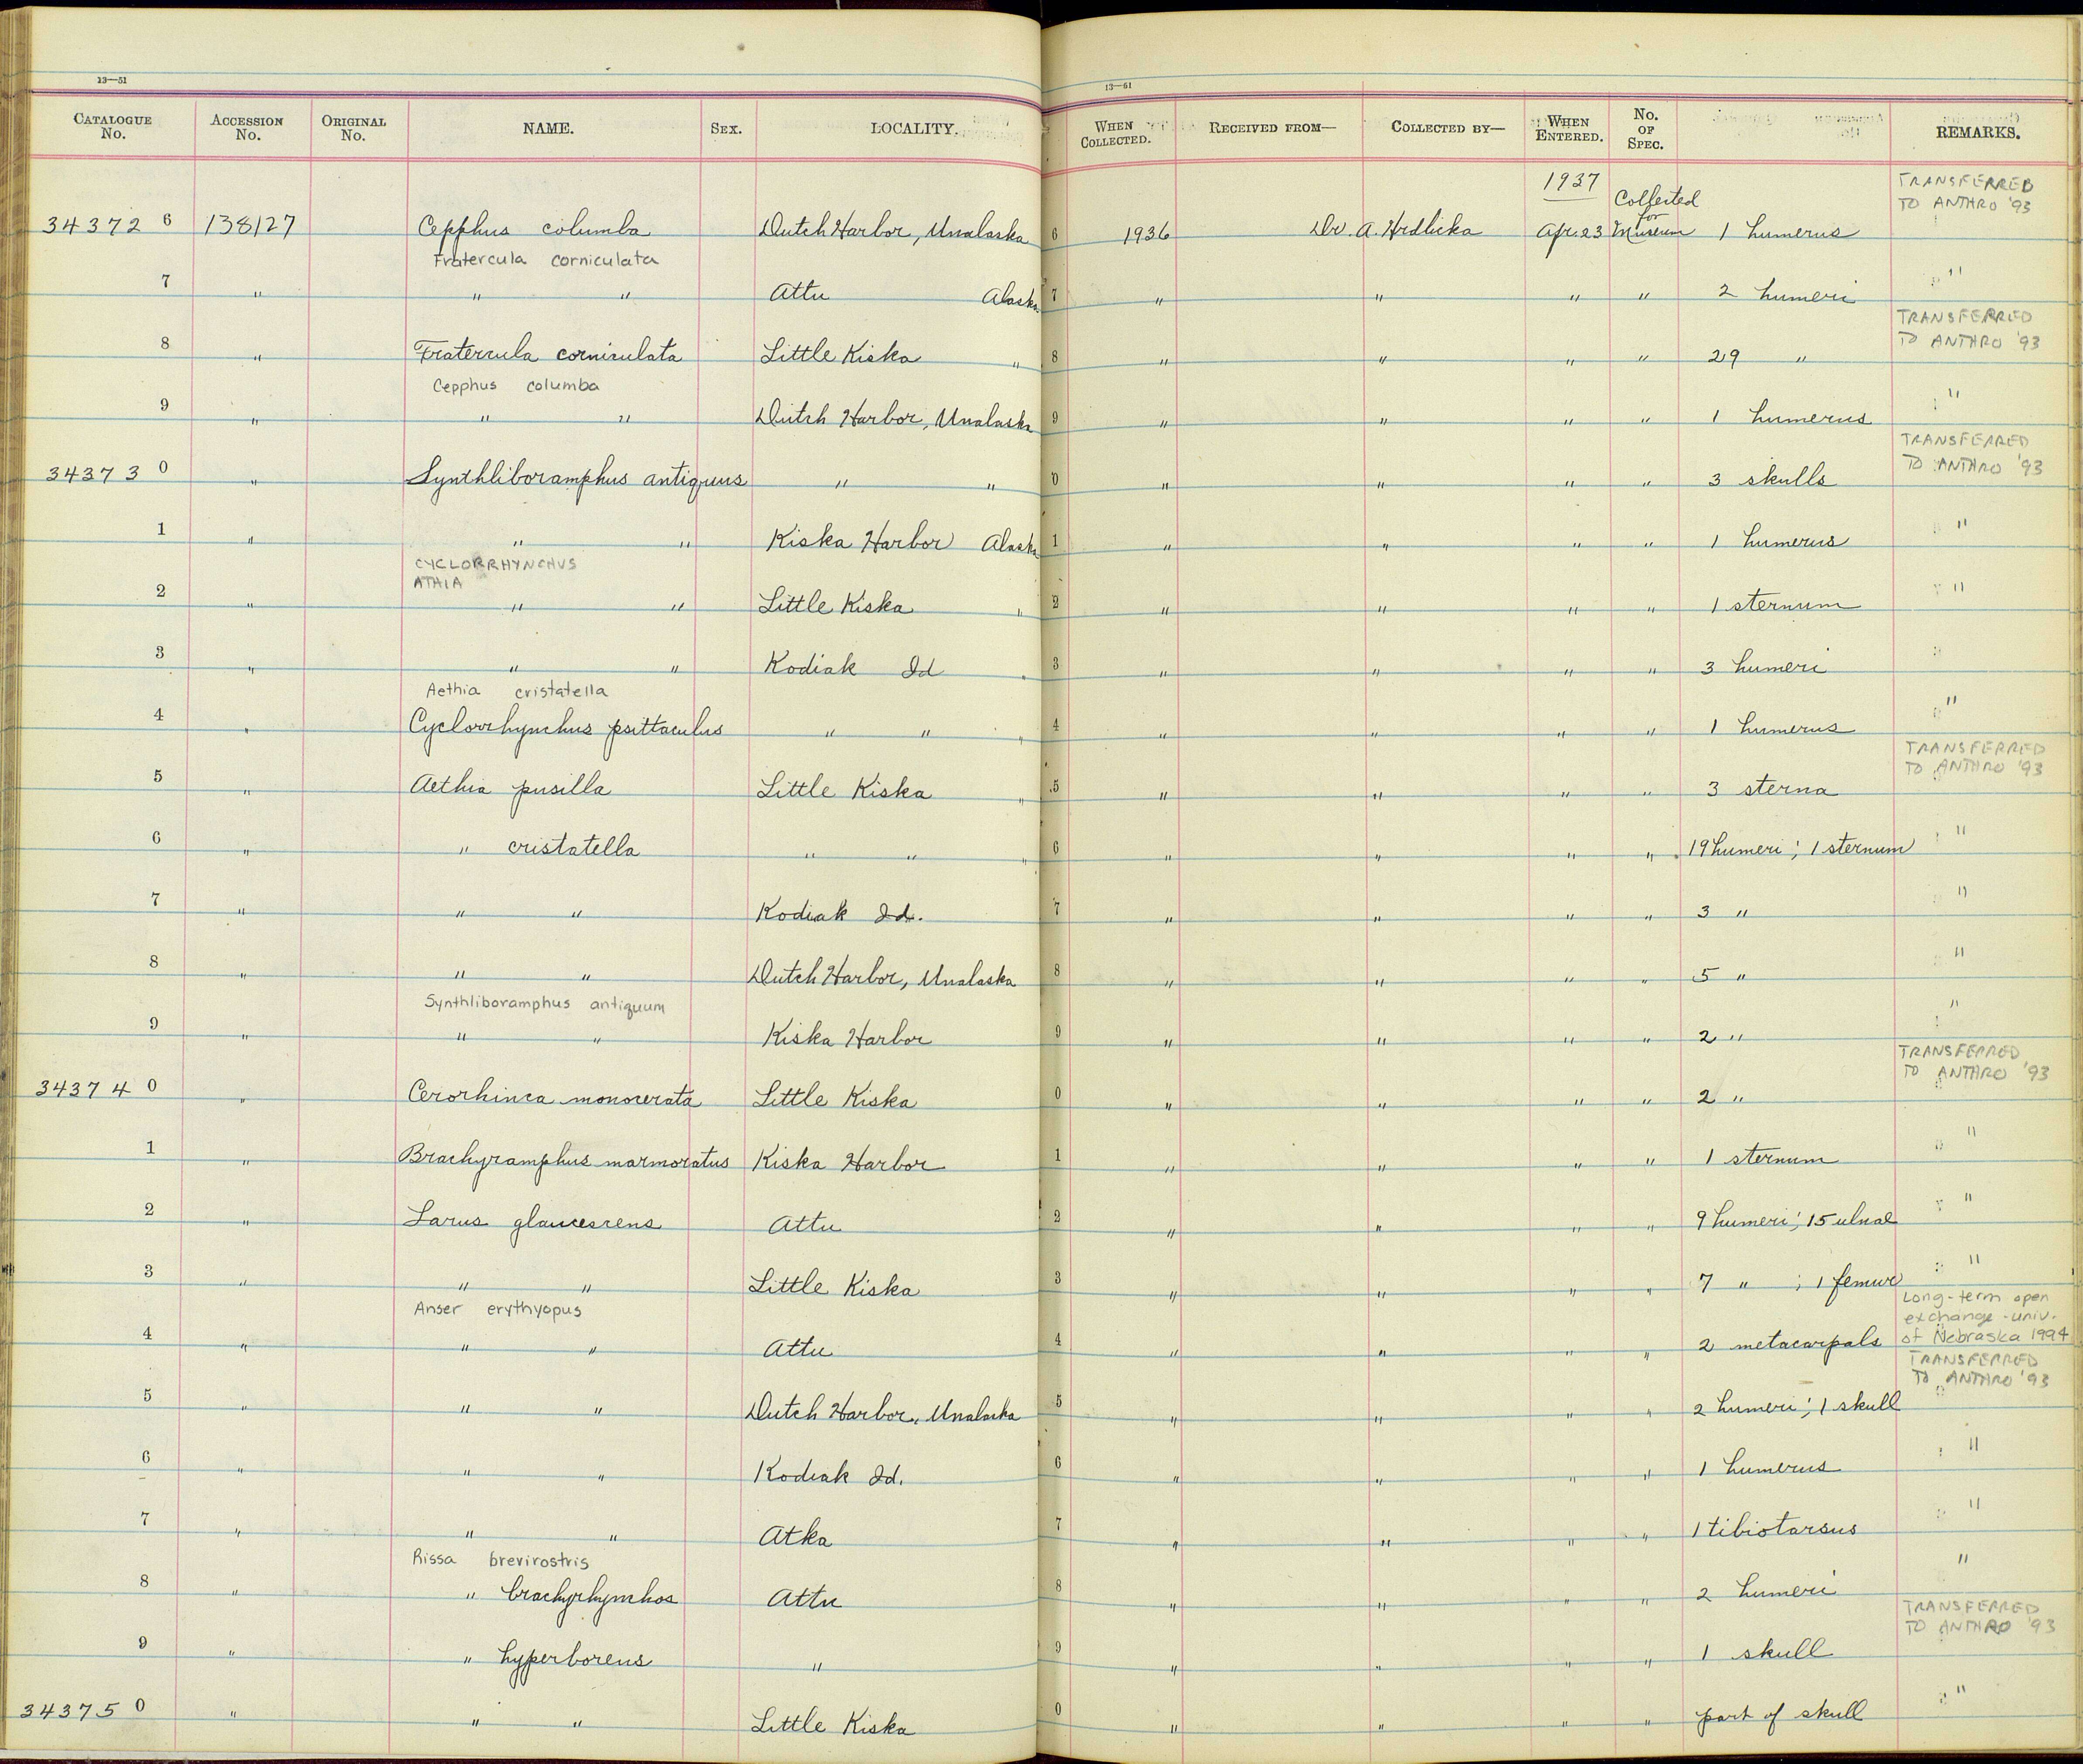 13—51
13—51
CATALOGUE No. ACCESSION No. ORIGINAL No. NAME. SEX. LOCALITY. WHEN COLLECTED. RECEIVED FROM— COLLECTED BY— WHEN ENTERED. No. OF SPEC. REMARKS.
1937 Collected for TRANSFERRED TO ANTHRO '93
34372 6 138127 Cepphus columba Dutch Harbor, Unalaska 6 1936 Dr. A. Hrdlicka Apr. 23 Museum 1 humerus
Fratercula corniculata
7 " " " Attu Alaska 7 " " " " 2 humeri "
TRANSFERRED TO ANTHRO '93
8 " Fratercula corniculata Little Kiska " 8 " " " " 29 "
Cepphus columba
9 " " " Dutch Harbor, Unalaska 9 " " " " 1 humerus "
TRANSFERRED TO ANTHRO '93
34373 0 " Synthliboramphus antiquus " " 0 " " " " 3 skulls
1 " " " Kiska Harbor Alaska 1 " " " " 1 humerus "
CYCLORRHYNCHUS
ATHIA
2 " " " Little Kiska " 2 " " " " 1 sternum "
3 " " " Kodiak Id " 3 " " " " 3 humeri "
Aethia cristatella
4 " Cyclorrhynchus psittaculus " " " 4 " " " " 1 humerus "
TRANSFERRED TO ANTHRO '93
5 " Aethia pusilla Little Kiska " 5 " " " " 3 sterna
6 " " cristatella " " " 6 " " " " 19 humeri; 1 sternum "
7 " " " Kodiak Id. 7 " " " " 3 " "
8 " " " Dutch Harbor, Unalaska 8 " " " " 5 " "
Synthliboramphus antiquum
9 " " " Kiska Harbor 9 " " " " 2 " "
TRANSFERRED TO ANTHRO '93
34374 0 " Cerorhinca monocerata Little Kiska 0 " " " " 2 "
1 " Brachyramphus marmoratus Kiska Harbor 1 " " " " 1 sternum "
2 " Larus glaucescens Attu 2 " " " " 9 humeri; 15 ulnae "
3 " " " Little Kiska 3 " " " " 7 " ; 1 femur "
Anser erythyopus Long-term open exchange - univ.
4 " " " Attu 4 " " " " 2 metacarpals of Nebraska 1994
TRANSFERRED TO ANTHRO '93
5 " " " Dutch Harbor, Unalaska 5 " " " " 2 humeri; 1 skull
6 " " " Kodiak Id. 6 " " " " 1 humerus "
7 " " " Atka 7 " " " " 1 tibiotarsus "
Rissa brevirostris
8 " " brachyrhynchos Attu 8 " " " " 2 humeri "
TRANSFERRED TO ANTHRO '93
9 " " hyperboreus " 9 " " " " 1 skull
34375 0 " " " Little Kiska 0 " " " " part of skull "